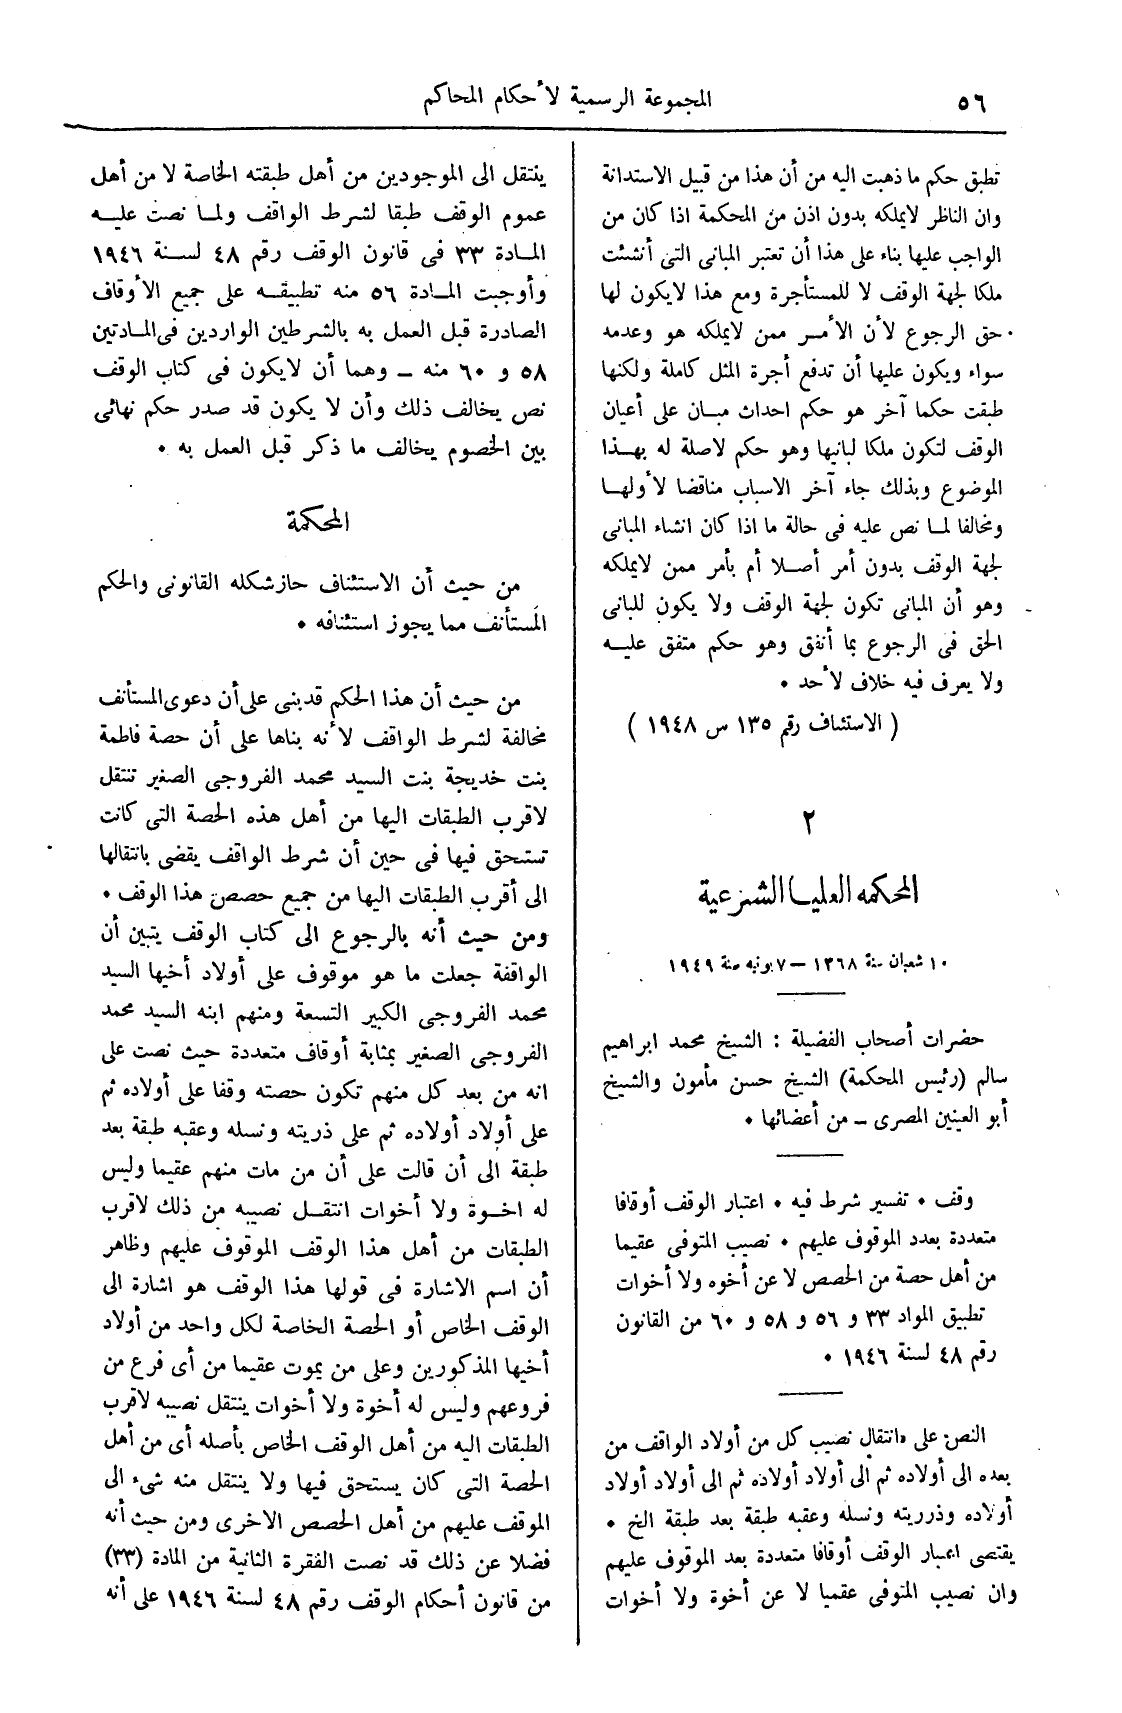 ٥٦
المجموعة الرسمية لأحكام المحاكم
تطبق حكم ما ذهبت اليه من أن هذا من قبيل الاستدانة
وان الناظر لايملكه بدون اذن من المحكمة اذا كان من
الواجب عليها بناء على هذا أن تعتبر المبانى التى أنشئت
ملكا لجهة الوقف لا للمستأجرة ومع هذا لايكون لها
حق الرجوع لأن الأمر ممن لايملكه هو وعدمه
سواء ويكون عليها أن تدفع أجرة المثل كاملة ولكنها
طبقت حكما آخر هو حكم احداث مبان على أعيان
الوقف لتكون ملكا لبانيها وهو حكم لاصلة له بهذا
الموضوع وبذلك جاء آخر الاسباب مناقضا لأولها
ومخالفا لما نص عليه فى حالة ما اذا كان انشاء المبانى
لجهة الوقف بدون أمر أصلا أم بأمر ممن لايملكه
وهو أن المبانى تكون لجهة الوقف ولا يكون للبانى
الحق فى الرجوع بما أنفق وهو حكم متفق عليه
ولا يعرف فيه خلاف لأحد •
( الاستئناف رقم ١٣٥ س ١٩٤٨ )
٢
المحكمه العليا الشرعية
١٠ شعبان سنة ١٣٦٨ – ٧ يونيه سنة ١٩٤٩
حضرات أصحاب الفضيلة : الشيخ محمد ابراهيم
سالم (رئيس المحكمة) الشيخ حسن مأمون والشيخ
أبو العينين المصرى – من أعضائها •
وقف • تفسير شرط فيه • اعتبار الوقف أوقافا
متعددة بعدد الموقوف عليهم • نصيب المتوفى عقيما
من أهل حصة من الحصص لا عن أخوه ولا أخوات
تطبيق المواد ٣٣ و ٥٦ و ٥٨ و ٦٠ من القانون
رقم ٤٨ لسنة ١٩٤٦ •
النص على انتقال نصيب كل من أولاد الواقف من
بعده الى أولاده ثم الى أولاد أولاده ثم الى أولاد أولاد
أولاده وذرريته ونسله وعقبه طبقة بعد طبقة الخ •
يقتضى اعتبار الوقف أوقافا متعددة بعد الموقوف عليهم
وان نصيب المتوفى عقميا لا عن أخوة ولا أخوات
ينتقل الى الموجودين من أهل طبقته الخاصة لا من أهل
عموم الوقف طبقا لشرط الواقف ولما نصت عليه
المادة ٣٣ فى قانون الوقف رقم ٤٨ لسنة ١٩٤٦
وأوجبت المادة ٥٦ منه تطبيقه على جميع الأوقاف
الصادرة قبل العمل به بالشرطين الواردين فى المادتين
٥٨ و ٦٠ منه – وهما أن لايكون فى كتاب الوقف
نص يخالف ذلك وأن لا يكون قد صدر حكم نهائى
بين الخصوم يخالف ما ذكر قبل العمل به •
المحكمة
من حيث أن الاستئناف حاز شكله القانونى والحكم
المستأنف مما يجوز استئنافه •
من حيث أن هذا الحكم قد بنى على أن دعوى المستأنف
مخالفة لشرط الواقف لأنه بناها على أن حصة فاطمة
بنت خديجة بنت السيد محمد الفروجى الصغير تنتقل
لاقرب الطبقات اليها من أهل هذه الحصة التى كانت
تستحق فيها فى حين أن شرط الواقف يقضى بانتقالها
الى أقرب الطبقات اليها من جميع حصص هذا الوقف •
ومن حيث أنه بالرجوع الى كتاب الوقف يتبين أن
الواقفة جعلت ما هو موقوف على أولاد أخيها السيد
محمد الفروجى الكبير التسعة ومنهم ابنه السيد محمد
الفروجى الصغير بمثابة أوقاف متعددة حيث نصت على
انه من بعد كل منهم تكون حصته وقفا على أولاده ثم
على أولاد أولاده ثم على ذريته ونسله وعقبه طبقة بعد
طبقة الى أن قالت على أن من مات منهم عقيما وليس
له اخوة ولا أخوات انتقل نصيبه من ذلك لاقرب
الطبقات من أهل هذا الوقف الموقوف عليهم وظاهر
أن اسم الاشارة فى قولها هذا الوقف هو اشارة الى
الوقف الخاص أو الحصة الخاصة لكل واحد من أولاد
أخيها المذكورين وعلى من يموت عقيما من أى فرع من
فروعهم وليس له أخوة ولا أخوات ينتقل نصيبه لاقرب
الطبقات اليه من أهل الوقف الخاص بأصله أى من أهل
الحصة التى كان يستحق فيها ولا ينتقل منه شىء الى
الموقف عليهم من أهل الحصص الاخرى ومن حيث أنه
فضلا عن ذلك قد نصت الفقرة الثانية من المادة (٣٣)
من قانون أحكام الوقف رقم ٤٨ لسنة ١٩٤٦ على أنه